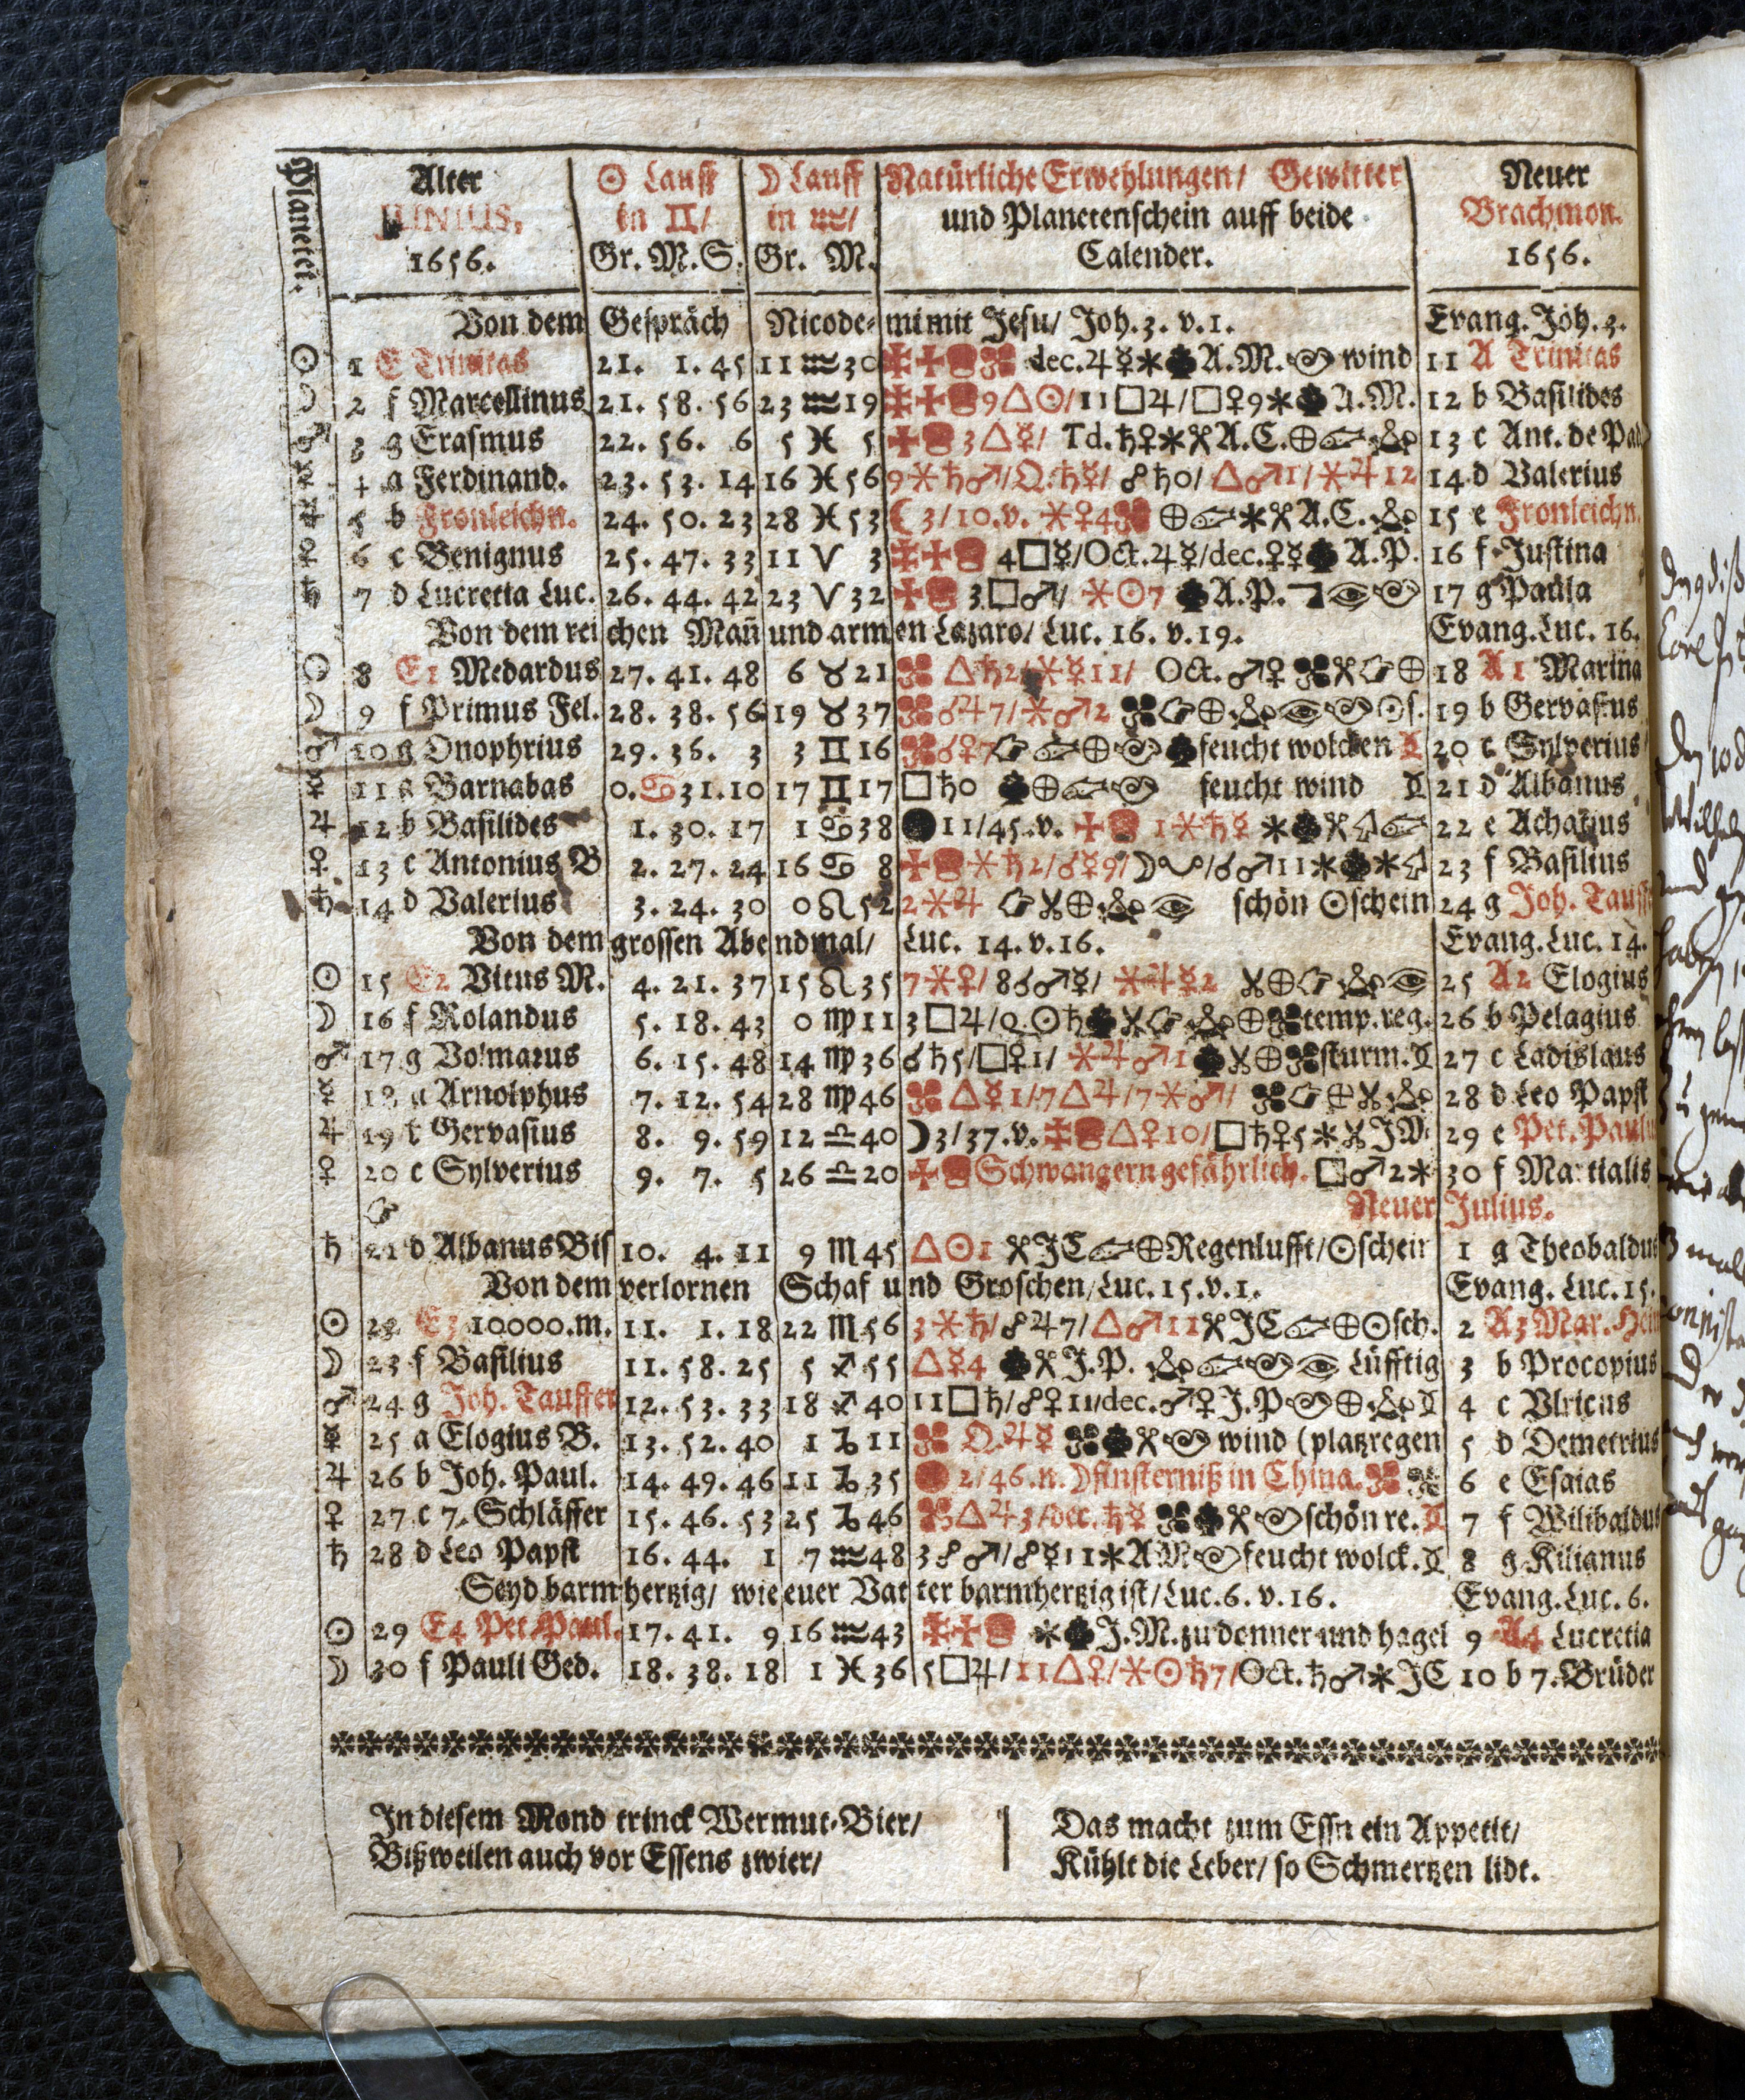 Planeten.
Alter ☉ Lauff ☽ Lauff Natürliche Erwehlungen/ Gewitter Neuer
JUNIUS. in ♊/ in ♒/ und Planetenschein auff beide Brachmon.
1656. Gr. M. S. Gr. M. Calender. 1656.
Von dem Gespräch Nicode-mi mit Jesu/ Joh. 3. v. 1. Evang. Joh. 3.
☉ 1 E Trinitas 21. 1. 45 11 ♒ 30 dec. ♃ ☿ A. M. wind 11 A Trinitas
☽ 2 f Marcellinus 21. 58. 56 23 ♒ 19 9 △ ☉/ 11 □ ♃/ □ ♀ 9 A. M. 12 b Basilides
♂ 3 g Erasmus 22. 56. 6 5 ♓ 5 3 △ ☿/ Td. ♄ ♀ A. C. 13 c Ant. de
☿ 4 a Ferdinand. 23. 53. 14 16 ♓ 56 9 ⚹ ♄ ♂/ Q. ♄ ☿/ ☍ ♄ 0/ △ ♂ 1/ ⚹ ♃ 12 14 d Valerius
♃ 5 b Fronleichn. 24. 50. 23 28 ♓ 53 ☾ 3/ 10. v. ⚹ ♀ 4 A. C. 15 e Fronleichn.
♀ 6 c Benignus 25. 47. 33 11 ♈ 3 4 □ ☿/ Oct. ♃ ☿/ dec. ♀ ☿ A. P. 16 f Justina
♄ 7 d Lucretia Luc. 26. 44. 42 23 ♈ 32 3 □ ♂/ ⚹ ☉ 7 A. P. 17 g Paula
Von dem reichen Mañ und armen Lazaro/ Luc. 16. v. 19. Evang. Luc. 16.
☉ 8 E1 Medardus 27. 41. 48 6 ♉ 21 △ ♄ 2/ ⚹ ☿ 11/ Oct. ♂ ♀ 18 A1 Marina
☽ 9 f Primus Fel. 28. 38. 56 19 ♉ 37 ☌ ♃ 7/ ⚹ ♂ 2 ☉ s. 19 b Gervasius
♂ 10 g Onophrius 29. 35. 3 3 ♊ 16 ☌ ♀ 7 feucht wolcken 20 c Sylverius
☿ 11 a Barnabas 0. ♋ 31. 10 17 ♊ 17 □ ♄ 0 feucht wind 21 d Albanus
♃ 12 b Basilides 1. 30. 17 1 ♋ 38 ● 11/ 45. v. 1 ⚹ ♄ ☿ 22 e Achatius
♀ 13 c Antonius B 2. 27. 24 16 ♋ 8 ⚹ ♄ 2/ ☌ ☿ 9/ ☽ / ☌ ♂ 11 23 f Basilius
♄ 14 d Valerius 3. 24. 30 0 ♌ 52 2 ⚹ ♃ schön ☉schein 24 g Joh.
Von dem grossen Abendmal/ Luc. 14. v. 16. Evang. Luc. 14.
☉ 15 E2 Vitus M. 4. 21. 37 15 ♌ 35 7 ⚹ ♀/ 8 ☌ ♂ ☿/ ⚹ ♃ ☿ 2 25 A2 Elogius
☽ 16 f Rolandus 5. 18. 43 0 ♍ 11 3 □ ♃/ Q. ☉ ♄ temp. reg. 26 b Pelagius
♂ 17 g Volmarus 6. 15. 48 14 ♍ 36 ☌ ♄ 5/ □ ♀ 1/ ⚹ ♃ ♂ 1 sturm. 27 c Ladislaus
☿ 18 a Arnolphus 7. 12. 54 28 ♍ 46 △ ☿ 1/ 7 △ ♃/ 7 ⚹ ♂/ 28 d Leo Papst
♃ 19 b Gervasius 8. 9. 59 12 ♎ 40 ☽ 3/ 37. v. △ ♀ 10/ □ ♄ ♀ 5 J. M. 29 e Pet.
♀ 20 c Sylverius 9. 7. 5 26 ♎ 20 Schwangern gefährlich. □ ♂ 2 30 f Martialis
Neuer Julius.
♄ 21 d Albanus Bis 10. 4. 11 9 ♏ 45 △ ☉ 1 JC Regenlufft/ ☉schein 1 g Theobaldus
Von dem verlornen Schaf und Groschen/ Luc. 15. v. 1. Evang. Luc. 15.
☉ 22 E3 10000. m. 11. 1. 18 22 ♏ 56 3 ⚹ ♄/ ☍ ♃ 7/ △ ♂ 11 JC ☉sch. 2 A3 Mar.
☽ 23 f Basilius 11. 58. 25 5 ♐ 55 △ ☿ 4 J. P. Lüfftig 3 b Procopius
♂ 24 g Joh. Tauffer 12. 53. 33 18 ♐ 40 11 □ ♄/ ☍ ♀ 11/ dec. ♂ ♀ J. P 4 c Vlricus
☿ 25 a Elogius B. 13. 52. 40 1 ♑ 11 Q. ♃ ☿ wind (platzregen 5 d Demetrius
♃ 26 b Joh. Paul. 14. 49. 46 11 ♑ 35 2/ 46. n. ☽finsterniß in China. 6 e Esaias
♀ 27 c 7. Schläffer 15. 46. 53 25 ♑ 46 △ ♃ 3/ dec. ♄ ☿ schön re. 7 f Wilibaldus
♄ 28 d Leo Papst 16. 44. 1 7 ♒ 48 3 ☍ ♂/ ☍ ☿ 11 A M feucht wolck. 8 g Kilianus
Seyd barmhertzig/ wie euer Vatter barmhertzig ist/ Luc. 6. v. 16. Evang. Luc. 6.
☉ 29 E4 Pet. Paul. 17. 41. 9 16 ♒ 43 J. M. zu donner und hagel 9 A4 Lucretia
☽ 30 f Pauli Ged. 18. 38. 18 1 ♓ 36 5 □ ♃/ 11 △ ♀/ ⚹ ☉ ♄ 7/ Oct. ♄ ♂ JC 10 b 7. Brüder
In diesem Mond trinck Wermut-Bier/
Bißweilen auch vor Essens zwier/
Das macht zum Essn ein Appetit/
Kühlt die Leber/ so Schmertzen lidt.